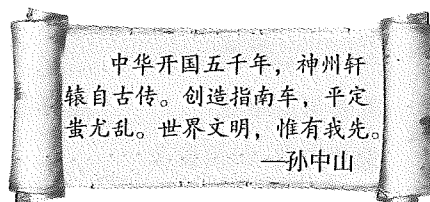 中华开国五千年，神州轩
辕自古传。创造指南车，平定
蚩尤乱。世界文明，惟有我先。
—孙中山